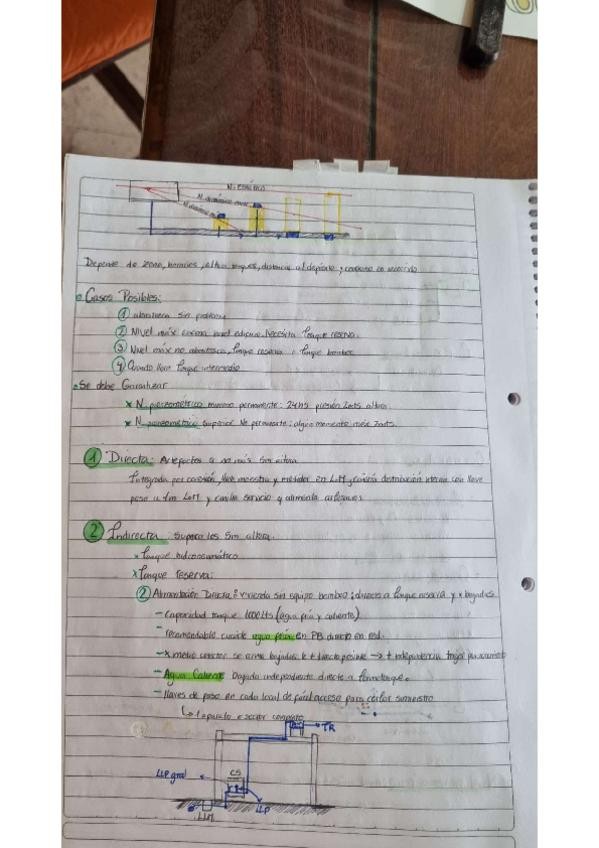 N. estático
N. dinámico max
N. dinámico
Depende de zona, horarios, altura tanques, distancia al depósito y consumo en recorrido.
Casos Posibles:
① abastece sin problema
② Nivel máx cocina nivel edificio. Necesita Tanque reserva.
③ Nivel máx no abastezca, Tanque reserva y Tanque bombeo.
④ Cuando lleva Tanque intermedio
Se debe Garantizar
x N. piezométrico mínimo permanente: 24hs presión altura.
x N. piezométrico superior No permanente: algun momento
① Directa: Artefactos a no más 5m altura
Integrada por conexión, llave maestra y medidor en LaM, cañería distribución interna con llave
paso a 1m LaM y caños servicio q alimenta artefactos
② Indirecta: Supera los 5m altura.
x Tanque hidroneumático
x Tanque reserva:
② Alimentación Directa: vivienda sin equipo bombeo; directo a Tanque reserva y x bajadas
– Capacidad tanque 1000lts (agua fría y caliente)
– recomendable cuando agua fría en PB directo en red.
– x metro conectar se arma bajadas lo + directo posible → + independencia
– Agua Caliente bajada independiente directo a termotanque.
– llaves de paso en cada local de fácil acceso para cortar suministro
↳
TR
LLP gral
CS
LLP
LLM